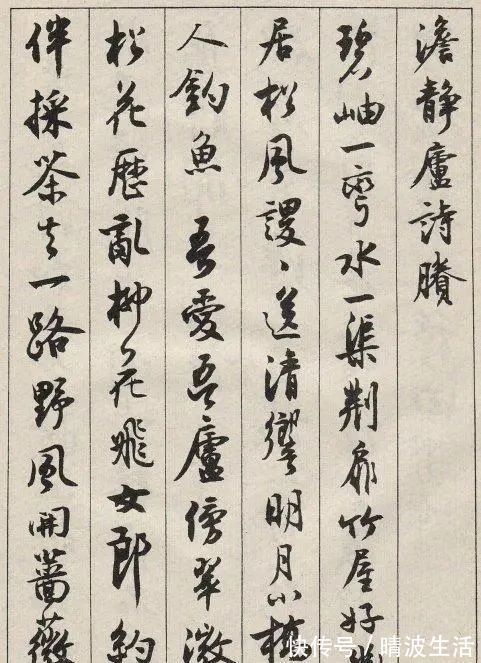 澹静廬詩賸
碧岫一彎水一渠荆扉竹屋好
居松風謖〻送清響明月小橋
人釣魚 吾愛吾廬傍翠微
松花歷亂柳花飛女郎約
伴採茶去一路野風開薔薇
快传号/晴波生活